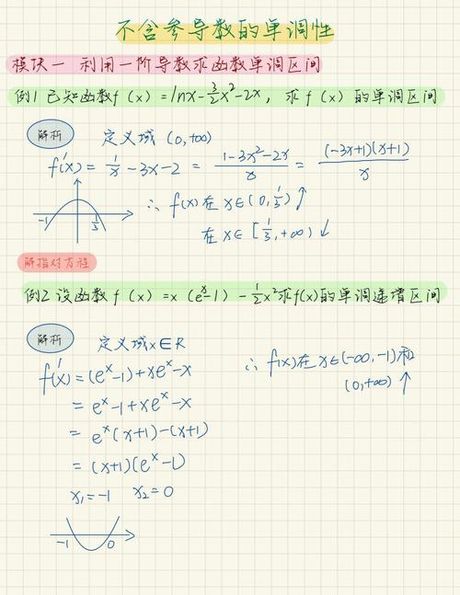 不含参导数的单调性
模块一 利用一阶导数求函数单调区间
例1 已知函数f(x)=lnx-3/2x²-2x, 求f(x)的单调区间
解析 定义域(0,+∞)
f'(x)=1/x-3x-2=(1-3x²-2x)/x=(-3x+1)(x+1)/x
-1 1/3
∴ f(x)在x∈(0,1/3)↑
在x∈[1/3,+∞)↓
解指对方程
例2 设函数f(x)=x(eˣ-1)-1/2x²求f(x)的单调递增区间
解析 定义域x∈R
f'(x)=(eˣ-1)+xeˣ-x
=eˣ-1+xeˣ-x
=eˣ(x+1)-(x+1)
=(x+1)(eˣ-1)
x₁=-1 x₂=0
-1 0
∴ f(x)在x∈(-∞,-1)和
(0,+∞)↑